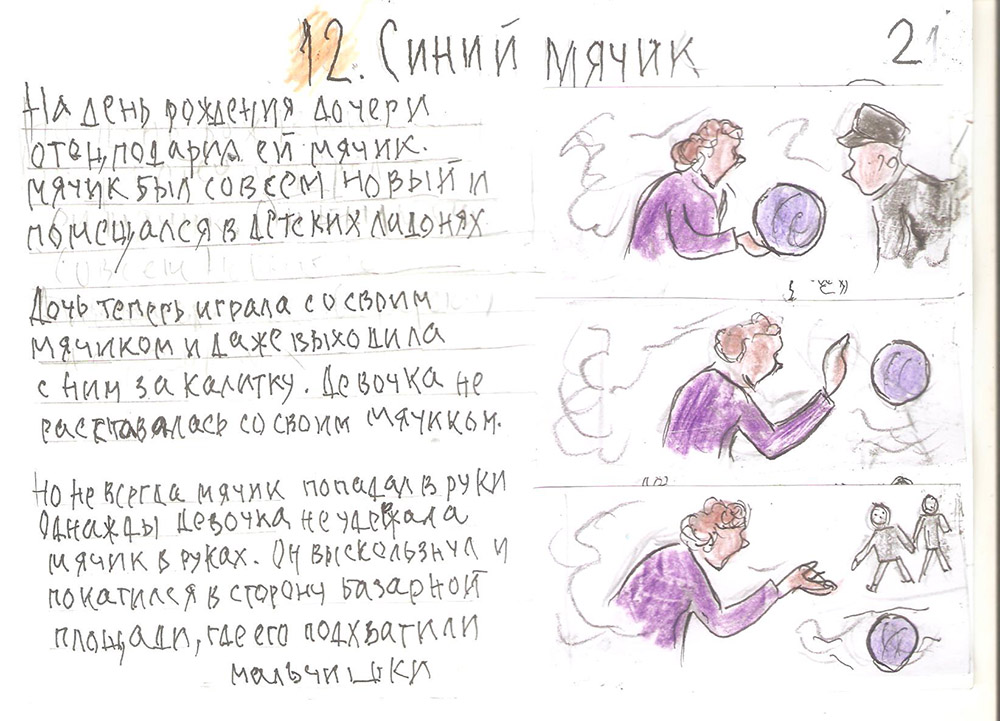 12. Синий мячик
21
На день рождения дочери
отец подарил ей мячик.
Мячик был совсем новый и
помещался в детских ладонях
Дочь теперь играла со своим
мячиком и даже выходила
с ним за калитку. Девочка не
расставалась со своим мячиком.
Но не всегда мячик попадал в руки
Однажды девочка не удержала
мячик в руках. Он выскользнул и
покатился в сторону базарной
площади, где его подхватили
мальчишки